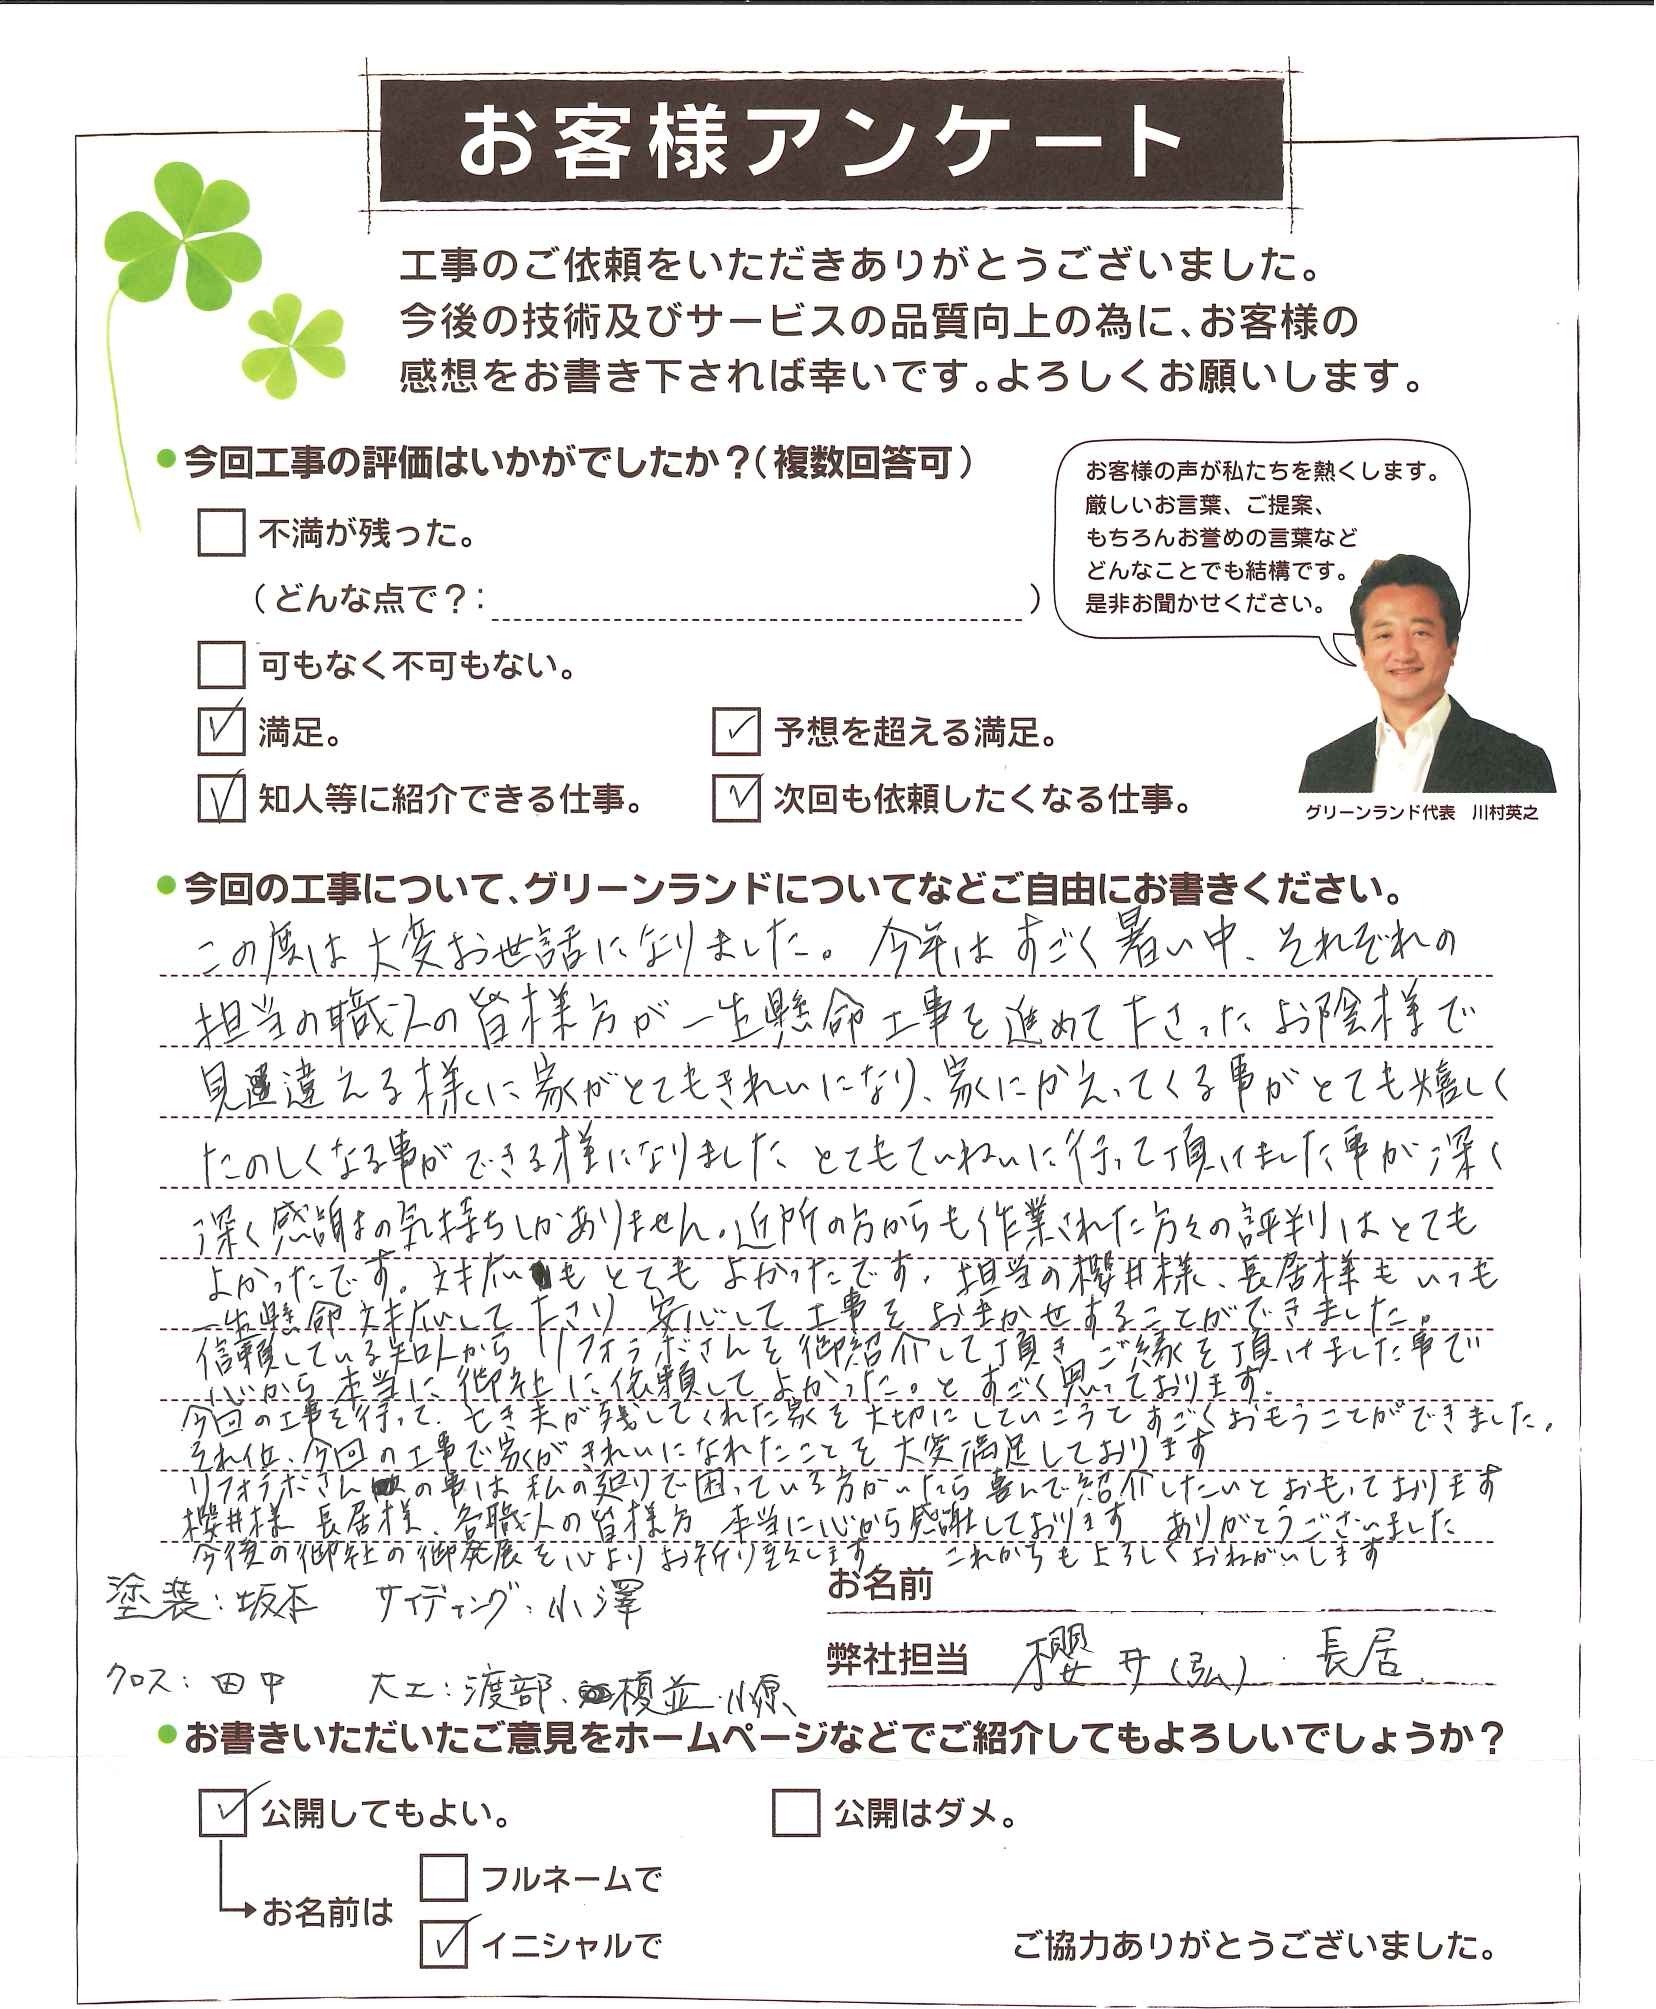 お客様アンケート
工事のご依頼をいただきありがとうございました。
今後の技術及びサービスの品質向上の為に、お客様の
感想をお書き下されば幸いです。よろしくお願いします。
●今回工事の評価はいかがでしたか？（複数回答可）
不満が残った。
（どんな点で？：　）
可もなく不可もない。
満足。
予想を超える満足。
知人等に紹介できる仕事。
次回も依頼したくなる仕事。
お客様の声が私たちを熱くします。
厳しいお言葉、ご提案、
もちろんお誉めの言葉など
どんなことでも結構です。
是非お聞かせください。
グリーンランド代表　川村英之
●今回の工事について、グリーンランドについてなどご自由にお書きください。
この度は大変お世話になりました。今年はすごく暑い中、それぞれの
担当の職人の皆様方が一生懸命工事を進めて下さったお陰様で
見違える様に家がとてもきれいになり、家にかえってくる事がとても嬉しく
たのしくなる事ができる様になりました とてもていねいに行って頂けました事が深く
深く感謝の気持ちしかありません。近所の方からも作業された方々の評判はとても
よかったです。対応もとてもよかったです。担当の櫻井様、長居様もいつも
一生懸命対応して下さり安心して工事をおまかせすることができました。
信頼している知人からリフォラボさんを御紹介して頂き、ご縁を頂けました事で
心から本当に御社に依頼してよかった。とすごく思っております。
今回の工事を行って、亡き夫が残してくれた家を大切にしていこうとすごくおもうことができました。
それ位、今回の工事で家がきれいになれたことを大変満足しております
リフォラボさんの事は私の廻りで困っている方がいたら喜んで紹介したいとおもっております
櫻井様 長居様、各職人の皆様方 本当に心から感謝しております ありがとうございました
今後の御社の御発展を心よりお祈り致します これからもよろしくおねがいします
お名前
塗装：坂本　サイディング：小澤
弊社担当　櫻井(弘)・長居
クロス：田中　大工：渡部、榎並、小原
●お書きいただいたご意見をホームページなどでご紹介してもよろしいでしょうか？
公開してもよい。
公開はダメ。
お名前は
フルネームで
イニシャルで
ご協力ありがとうございました。